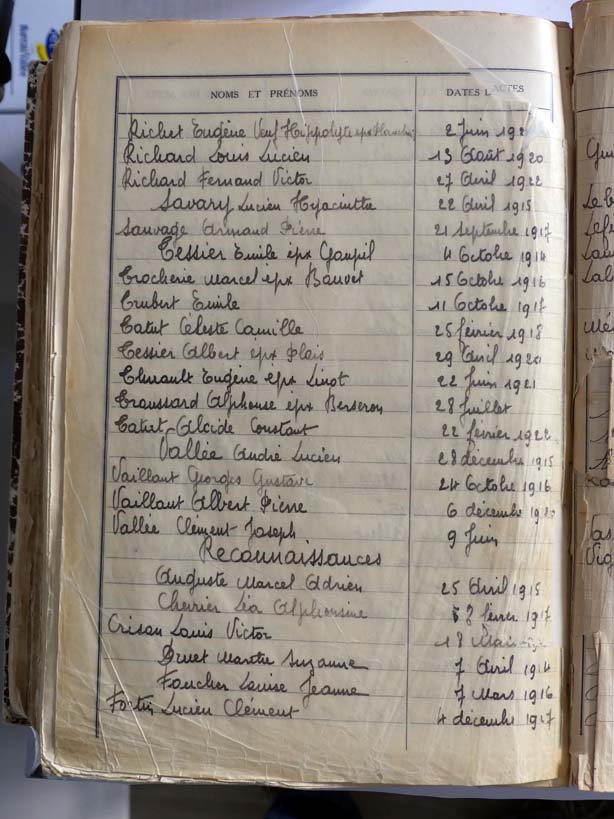 NOMS ET PRÉNOMS DATES D'ACTES
Richet Eugène Veuf Hippolyte epx 2 Juin 192
Richard Louis Lucien 13 Août 1920
Richard Fernand Victor 27 Avril 1922
Savary Lucien Hyacinthe 22 Avril 1915
Sauvage Armand Pierre 21 Septembre 1917
Tessier Emile epx Goupil 4 Octobre 1914
Trocherie Marcel epx Bauvet 15 Octobre 1916
Trubert Emile 11 Octobre 1917
Tatut Céleste Camille 25 février 1918
Tessier Albert epx Plais 29 Avril 1920
Thuault Eugène epx Linot 22 Juin 1921
Troussard Alphonse epx Berseron 28 Juillet
Tatut Alcide Constant 22 février 1922
Vallée André Lucien 28 décembre 1915
Vaillant Georges Gustave 24 Octobre 1916
Vaillant Albert Pierre 6 décembre 1920
Vallée Clément Joseph 9 Juin
Reconnaissances
Auguste Marcel Adrien 25 Avril 1915
Chevrier Léa Alphonsine 8 février 1917
Crison Louis Victor 18 Mai
Druet Marthe Suzanne 7 Avril 1914
Foucher Louise Jeanne 7 Mars 1916
Fortin Lucien Clément 4 décembre 1917